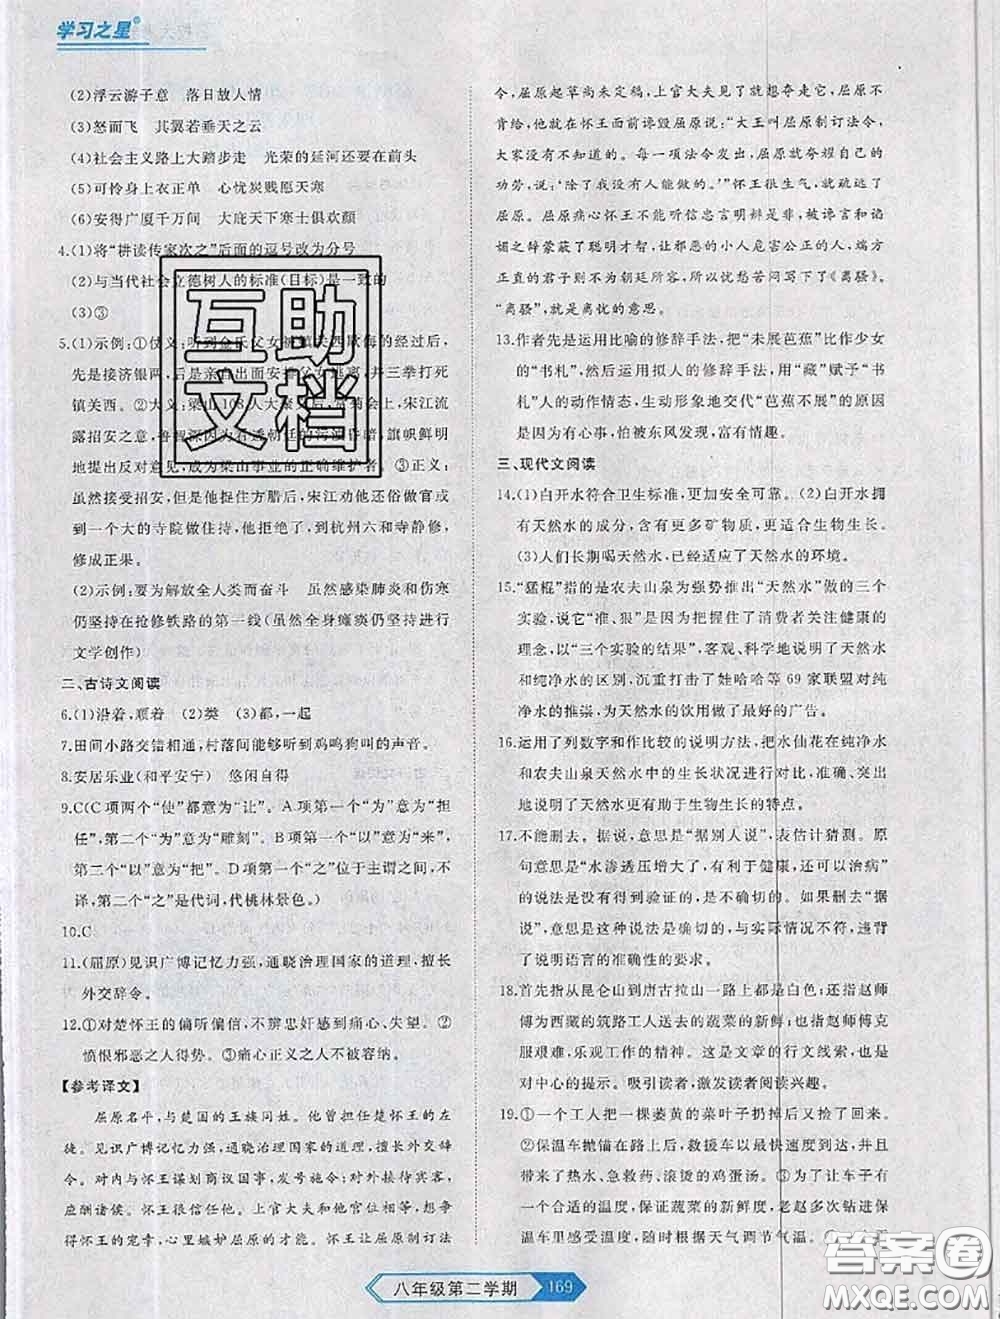 学习之星®
(2)浮云游子意　落日故人情
(3)怒而飞　其翼若垂天之云
(4)社会主义路上大踏步走　光荣的延河还要在前头
(5)可怜身上衣正单　心忧炭贱愿天寒
(6)安得广厦千万间　大庇天下寒士俱欢颜
4.(1)将“耕读传家次之”后面的逗号改为分号
(2)与当代社会立德树人的标准(目标)是一致的
(3)③
5.(1)示例:①仗义:听到金氏父女被镇关西欺侮的经过后,
先是接济银两,后是亲自出面安排父女逃离,并三拳打死
镇关西。②大义:梁山108人大聚义后,宋江流
露招安的意向,鲁智深因为看透朝廷的污浊昏暗,旗帜鲜明
地提出反对意见,成为梁山事业的正确维护者。③正义:
虽然接受招安,但他捉住方腊后,宋江劝他还俗做官或
到一个大的寺院做住持,他拒绝了,到杭州六和寺静修,
修成正果。
(2)示例:要为解放全人类而奋斗　虽然感染肺炎和伤寒
仍坚持在抢修铁路的第一线(虽然全身瘫痪仍坚持进行
文学创作)
二、古诗文阅读
6.(1)沿着,顺着　(2)类　(3)都,一起
7.田间小路交错相通,村落间能够听到鸡鸣狗叫的声音。
8.安居乐业(和平安宁)　悠闲自得
9.C(C项两个“使”都意为“让”。A项第一个“为”意为“担
任”,第二个“为”意为“雕刻”。B项第一个“以”意为“来”,
第二个“以”意为“把”。D项第一个“之”位于主谓之间,不
译,第二个“之”是代词,代桃林景色。)
10.C
11.(屈原)见识广博记忆力强,通晓治理国家的道理,擅长
外交辞令。
12.①对楚怀王的偏听偏信,不辨忠奸感到痛心、失望。②
愤恨邪恶之人得势。③痛心正义之人不被容纳。
【参考译文】
屈原名平,与楚国的王族同姓。他曾担任楚怀王的左
徒。见识广博记忆力强,通晓治理国家的道理,擅长外交辞
令。对内与怀王谋划商议国事,发号施令;对外接待宾客,
应酬诸侯。怀王很信任他。上官大夫和他职位相同,想争
得怀王的宠幸,心里嫉妒屈原的才能。怀王让屈原制订法
令,屈原起草尚未定稿,上官大夫见了就想夺走它,屈原不
肯给,他就在怀王面前谗毁屈原说:“大王叫屈原制订法令,
大家没有不知道的。每一项法令发出,屈原就夸耀自己的
功劳,说:‘除了我没有人能做的。’”怀王很生气,就疏远了
屈原。屈原痛心怀王不能听信忠言明辨是非,被谗言和谄
媚之辞蒙蔽了聪明才智,让邪恶的小人危害公正的人,端方
正直的君子则不为朝廷所容,所以忧愁苦闷写下了《离骚》。
“离骚”,就是离忧的意思。
13.作者先是运用比喻的修辞手法,把“未展芭蕉”比作少女
的“书札”,然后运用拟人的修辞手法,用“藏”赋予“书
札”人的动作情态,生动形象地交代“芭蕉不展”的原因
是因为有心事,怕被东风发现,富有情趣。
三、现代文阅读
14.(1)白开水符合卫生标准,更加安全可靠。(2)白开水拥
有天然水的成分,含有更多矿物质,更适合生物生长。
(3)人们长期喝天然水,已经适应了天然水的环境。
15.“猛棍”指的是农夫山泉为强势推出“天然水”做的三个
实验,说它“准、狠”是因为它把握住了消费者关注健康的
心理,以“三个实验的结果”,客观、科学地说明了天然水
和纯净水的区别,沉重打击了娃哈哈等69家联盟对纯
净水的推崇,为天然水的饮用做了最好的广告。
16.运用了列数字和作比较的说明方法,把水仙花在纯净水
和农夫山泉天然水中的生长状况进行对比,准确、突出
地说明了天然水更有助于生物生长的特点。
17.不能删去。据说,意思是“据别人说”,表估计猜测。原
句意思是“水渗透压增大了,有利于健康,还可以治病”
的说法没有得到验证的,是不确切的。如果删去“据
说”,意思是这种说法是确切的,与实际情况不符,违背
了说明语言的准确性的要求。
18.首先指从昆仑山到唐古拉山一路上都是白色;还指赵师
傅为西藏的筑路工人送去的蔬菜的新鲜;也指赵师傅克
服艰难,乐观工作的精神。这是文章的行文线索,也是
对中心的提示。吸引读者,激发读者阅读兴趣。
19.①一个工人把一棵萎黄的菜叶子扔掉后又捡了回来。
②保温车抛锚在路上后,救援车以最快速度到达,并且
带了热水、急救药、滚烫的鸡蛋汤。③为了让车子有一
个合适的温度,保存蔬菜的新鲜度,老赵多次钻进保
温车里感受温度,同时根据天气调节气温。
互助文档
八年级第二学期　169
答案圈
MXQE.COM